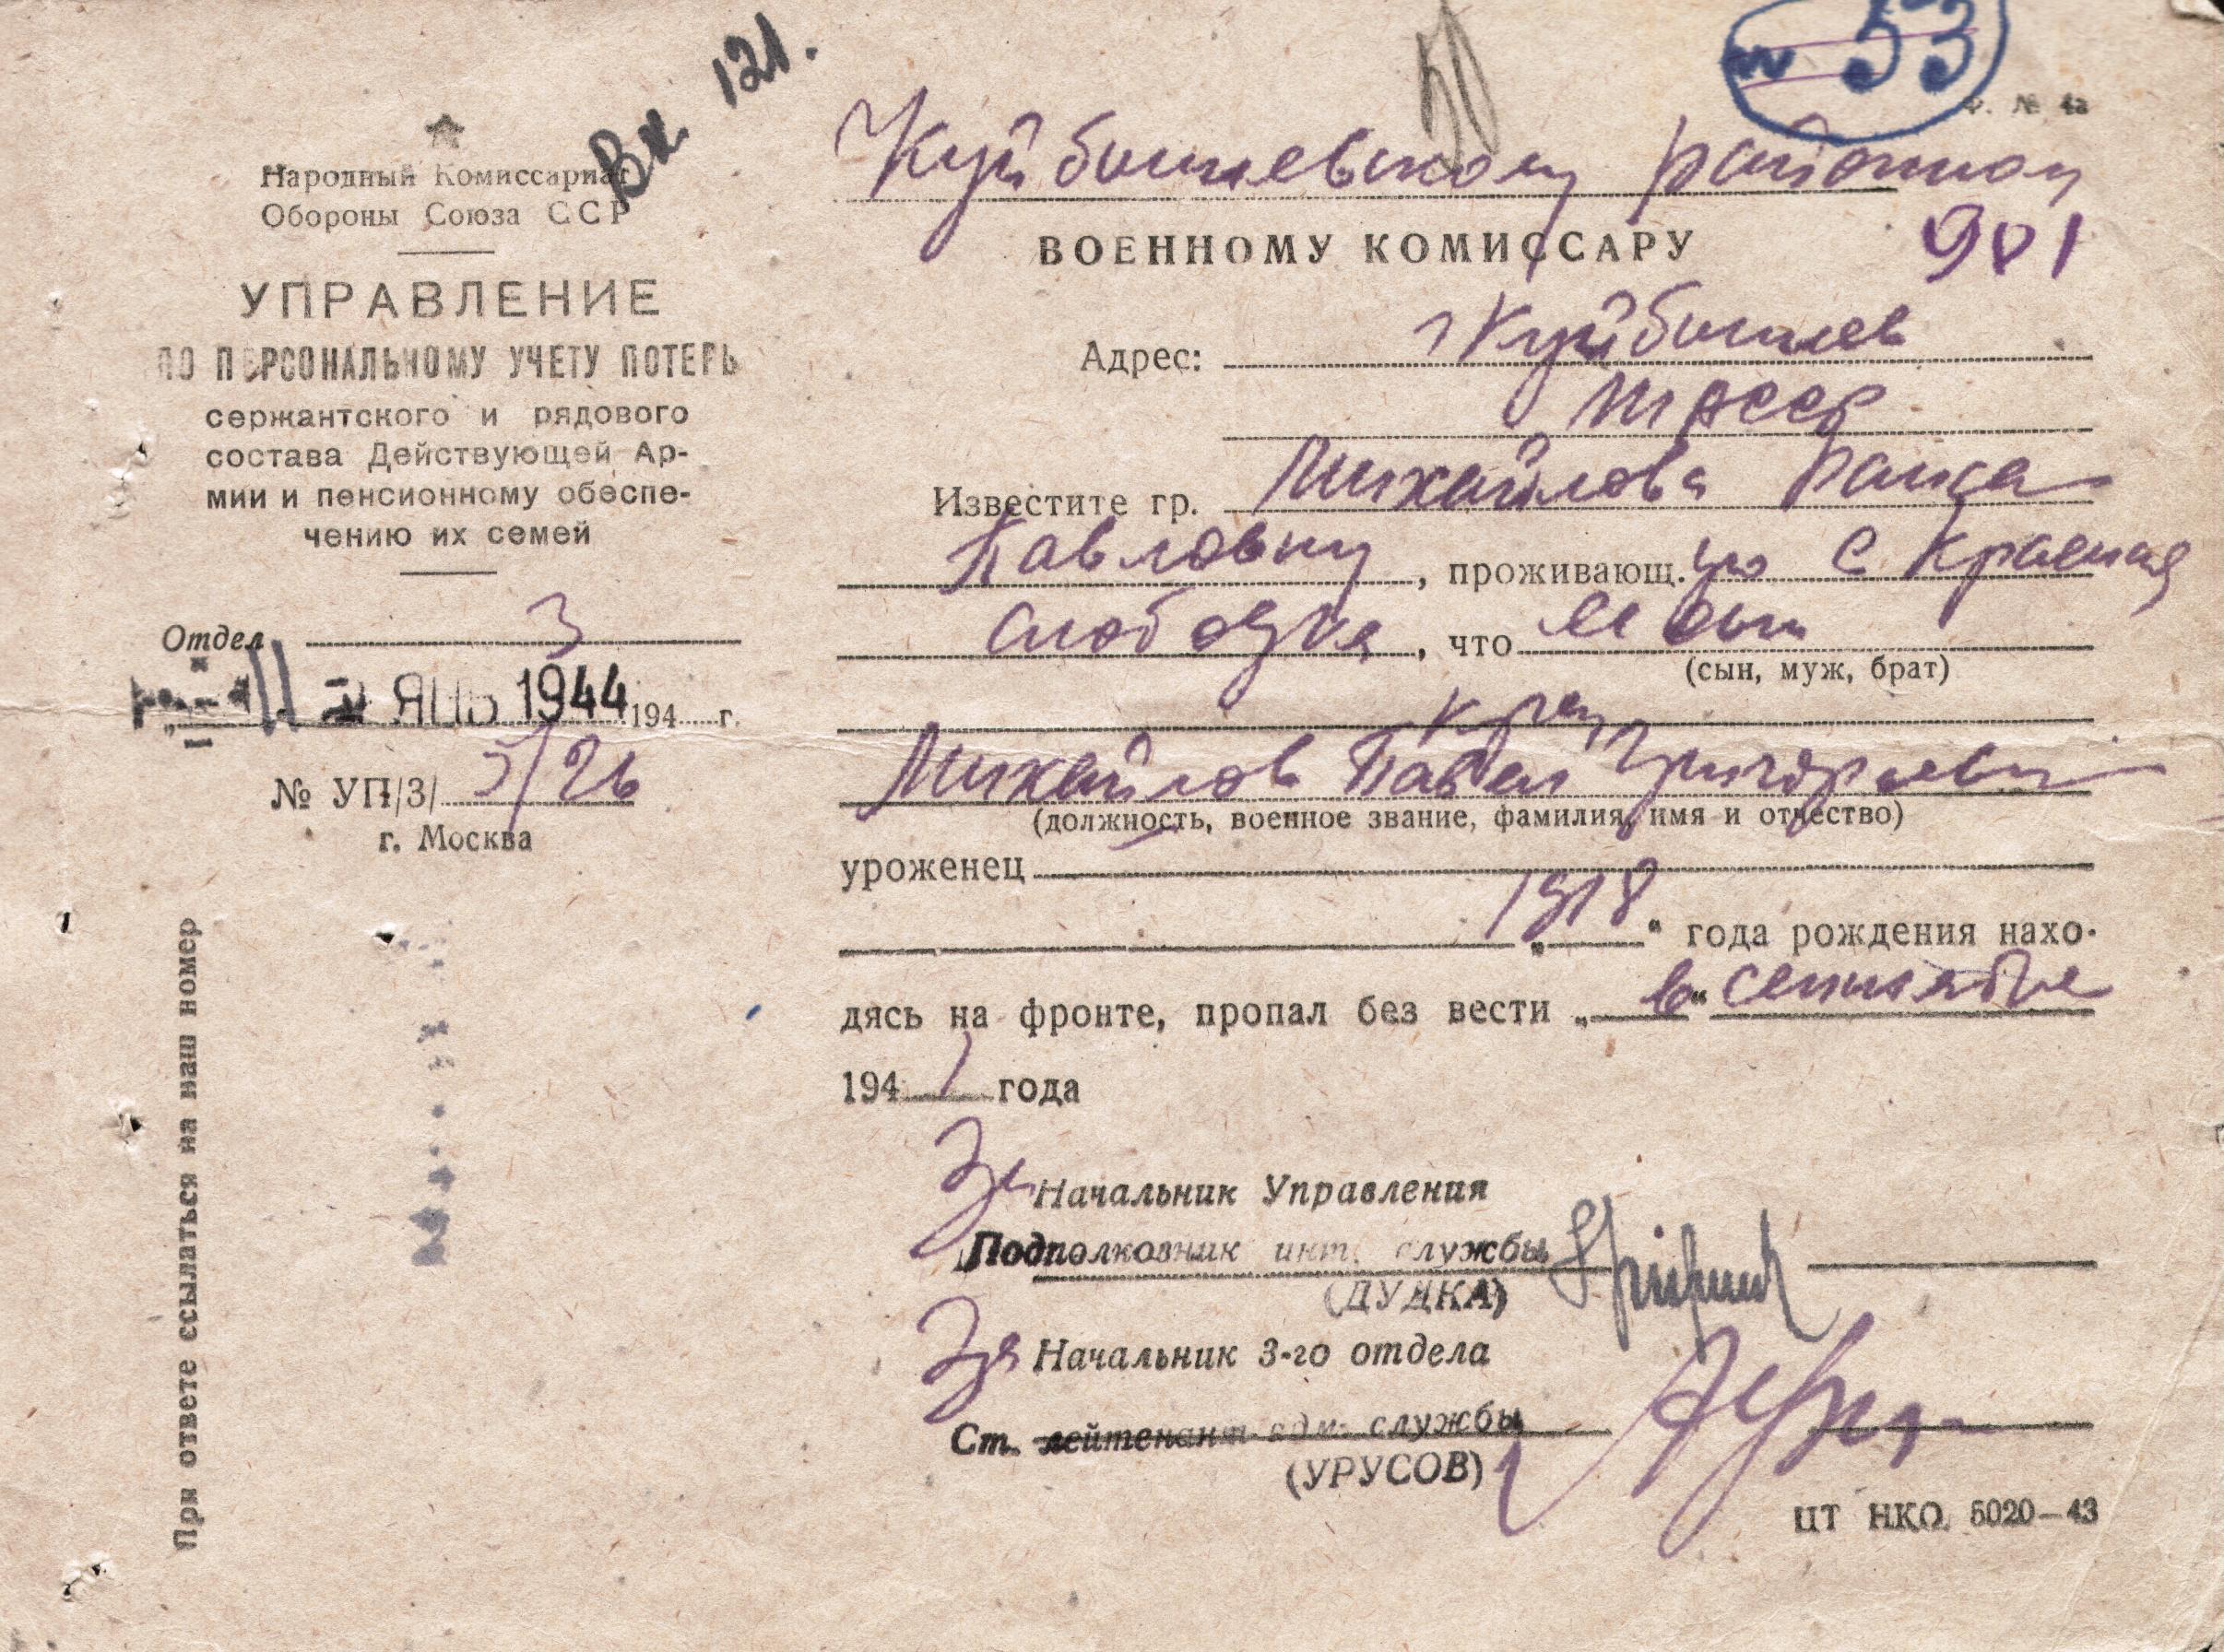 Вх. 121.
50
53
Ф. № 4а
Народный Комиссариат
Обороны Союза ССР
УПРАВЛЕНИЕ
ПО ПЕРСОНАЛЬНОМУ УЧЕТУ ПОТЕРЬ
сержантского и рядового
состава Действующей Ар-
мии и пенсионному обеспе-
чению их семей
Отдел 3
ЯНВ 1944 194 г.
№ УП/3/ 3/26
г. Москва
При ответе ссылаться на наш номер
Куйбышевскому районному
ВОЕННОМУ КОМИССАРУ
901
Адрес: г Куйбышев
ТАССР
Известите гр. Михайлова
Павловну, проживающ.ую с Красная
слободка, что ее сын
(сын, муж, брат)
кр-ец
Михайлов Павел Григорьевич
(должность, военное звание, фамилия, имя и отчество)
уроженец
„1918“ года рождения нахо-
дясь на фронте, пропал без вести „в“ сентябре
1941 года
За Начальник Управления
Подполковник инт. службы
(ДУДКА)
За Начальник 3-го отдела
Ст. лейтенант адм. службы
(УРУСОВ)
ЦТ НКО. 5020—43